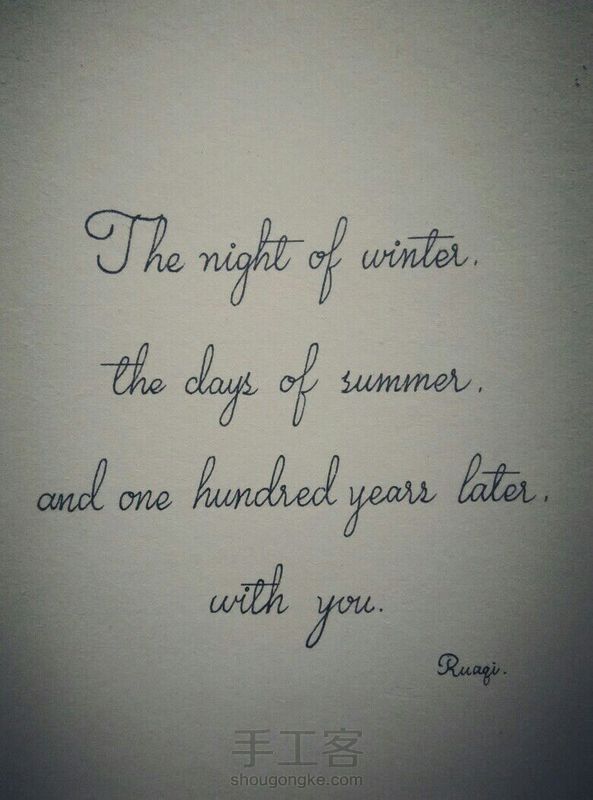 The night of winter,
the days of summer,
and one hundred years later,
with you.
Ruaqi.
手工客
shougongke.com